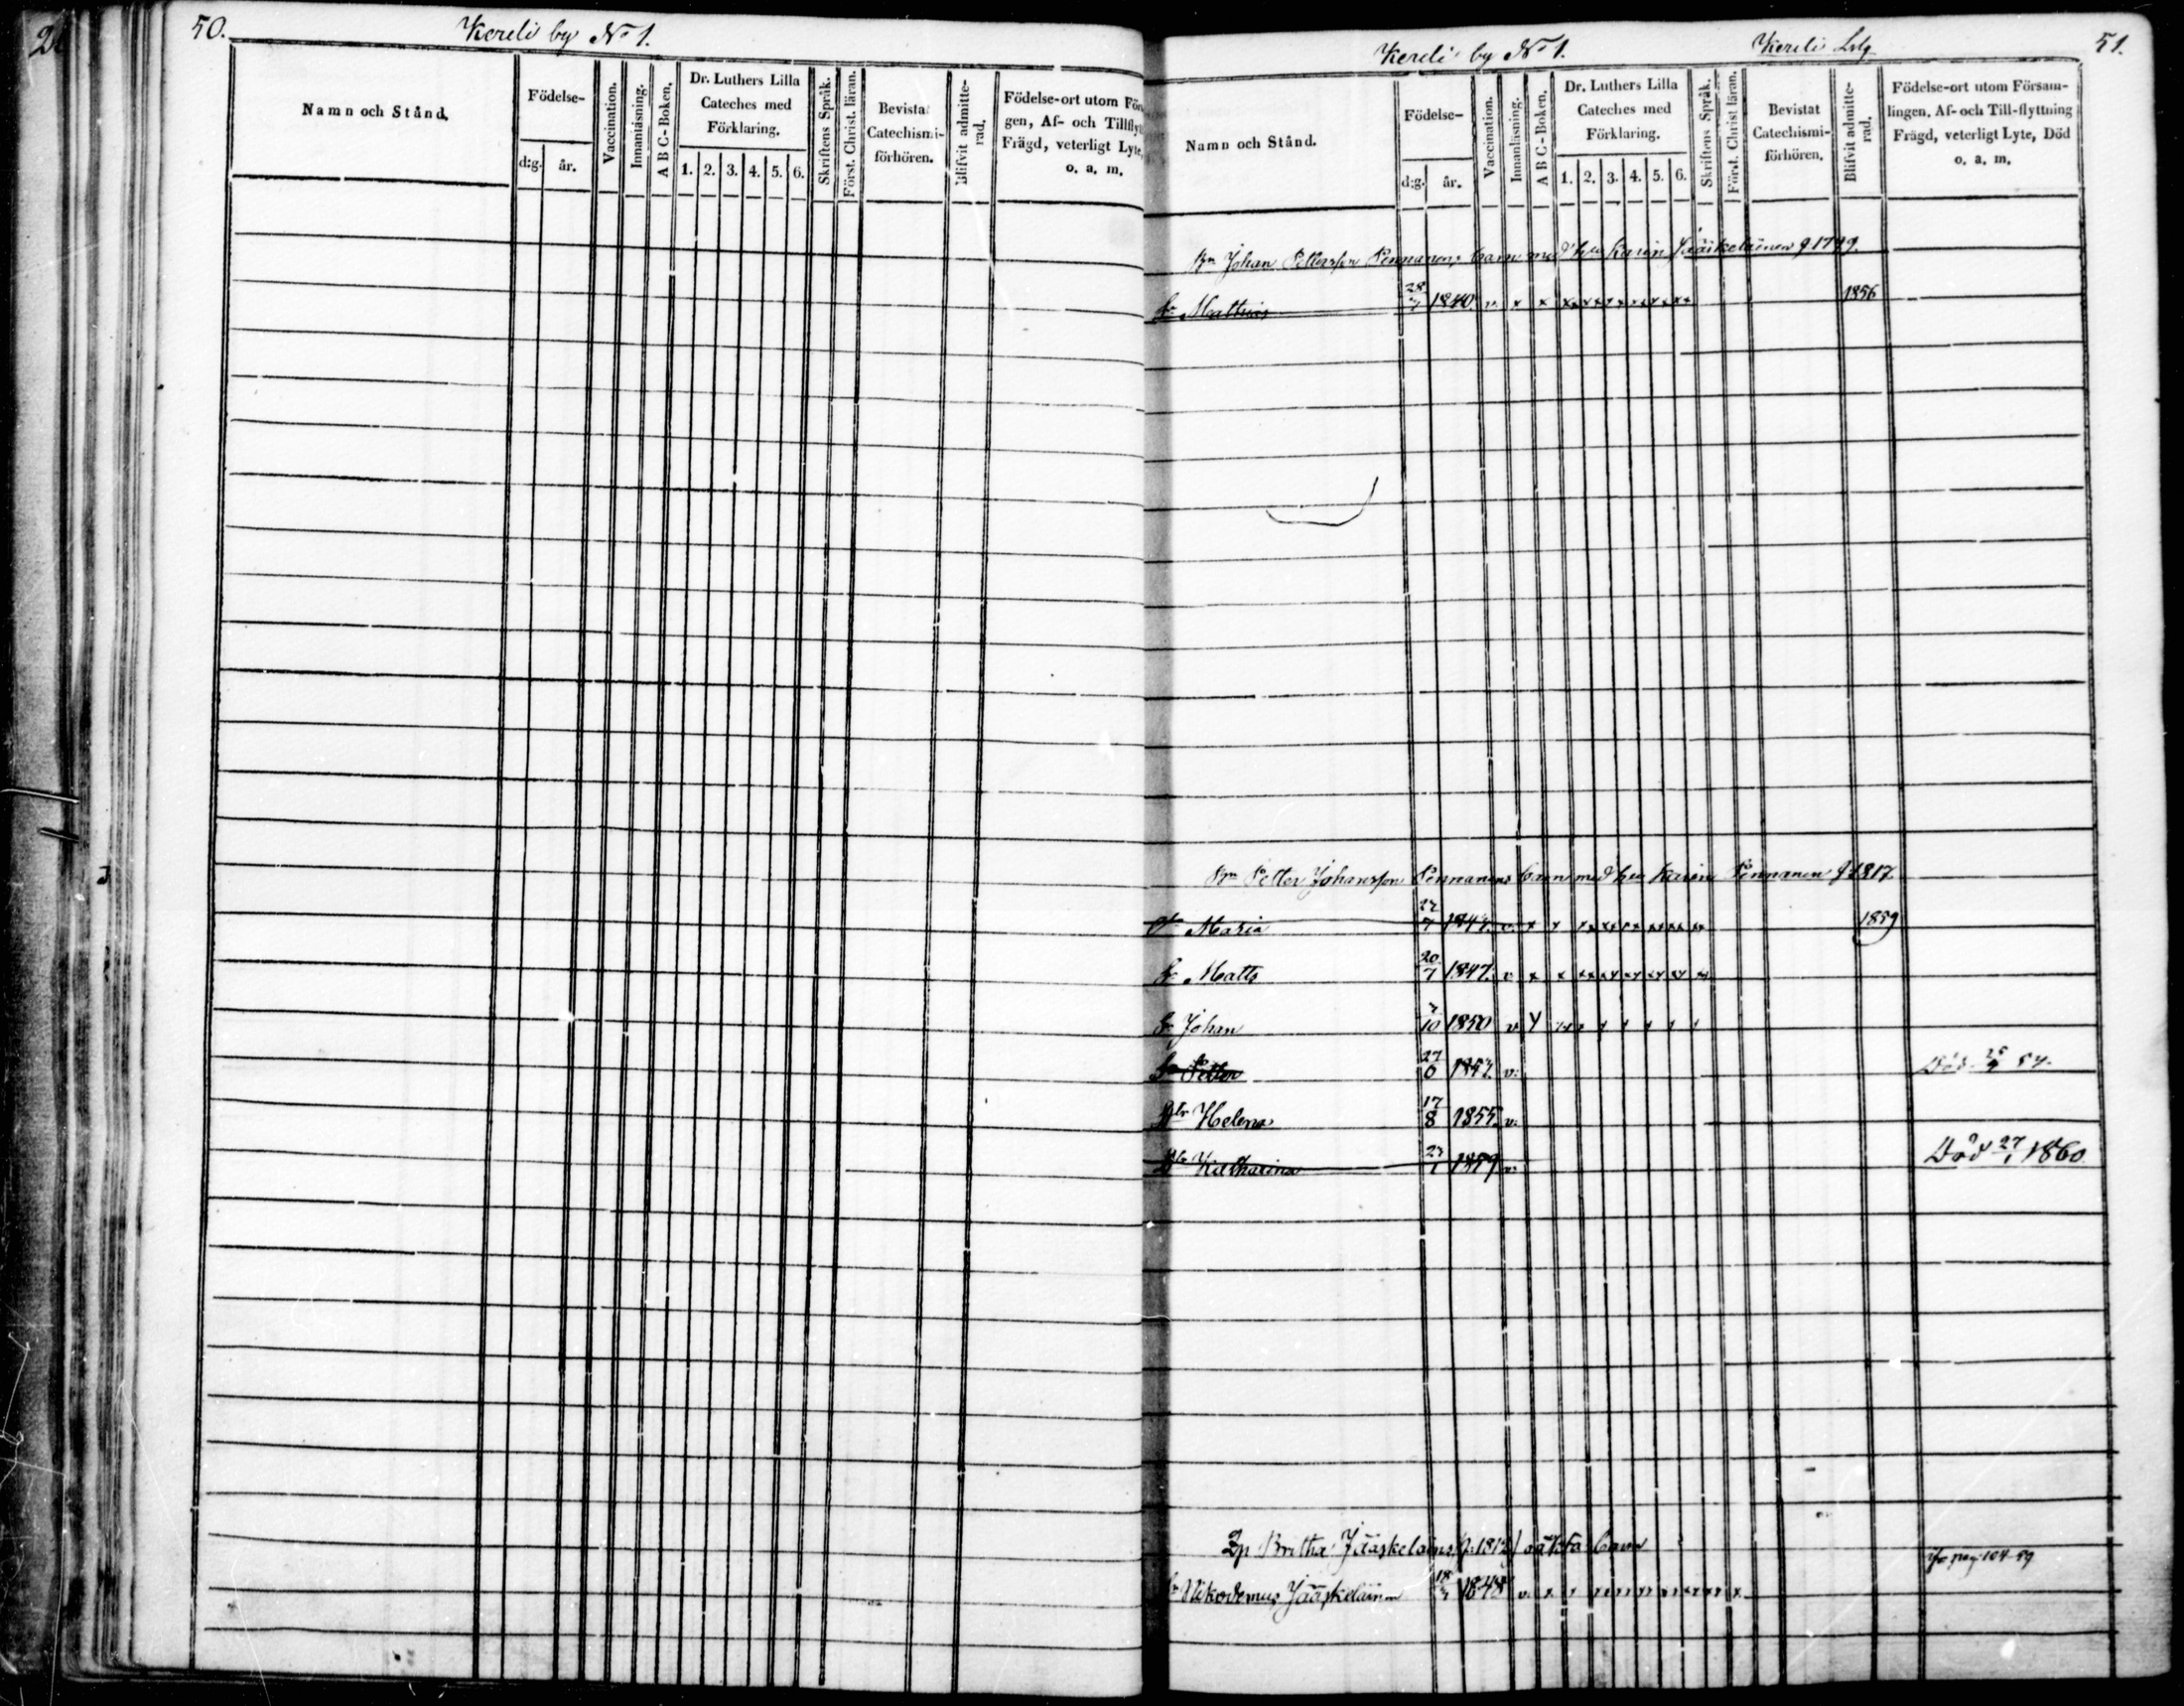 50.
Kereli by No 1.
Namn och Stånd.
Födelse-
d:g. år.
Vaccination.
Innanläsning.
A B C-Boken.
Dr. Luthers Lilla
Cateches med
Förklaring.
1. 2. 3. 4. 5. 6.
Skriftens Språk.
Först. Christ. läran.
Bevistat
Catechismi-
förhören.
Blifvit admitte-
rad.
Födelse-ort utom För
gen, Af- och Tillfly
Frägd, veterligt Lyte,
o. a. m.
Kereli by No 1.
Kereli
51.
Namn och Stånd.
Födelse-
d:g. år.
Vaccination.
Innanläsning.
A B C-Boken.
Dr. Luthers Lilla
Cateches med
Förklaring.
1. 2. 3. 4. 5. 6.
Skriftens Språk.
Först. Christ. läran.
Bevistat
Catechismi-
förhören.
Blifvit admitte-
rad.
Födelse-ort utom Försam-
lingen. Af- och Till-flyttning
Frägd, veterligt Lyte, Död
o. a. m.
Johan Pettersson Pennanens barn med hu Karin Jääskeläinen f 1799.
Sn Mathias 28/7 1840. v. x x 1856
Petter Johansson Pennanens barn med hu Karin Pennanen f 1817.
Dr Maria v. x x 1859
Sn Matts 20/7 1847. v. x x
Sn Johan 10 1850 v.
Sn Petter 27/6 v. Död
Dtr Helena 17/8 1855. v.
Dtr Katharina 1859 v. Död 27/1 1860
Britha Jääskeläins oäkta barn
pag 104
Sn Nikodemus Jääskeläinen 1848 v. x